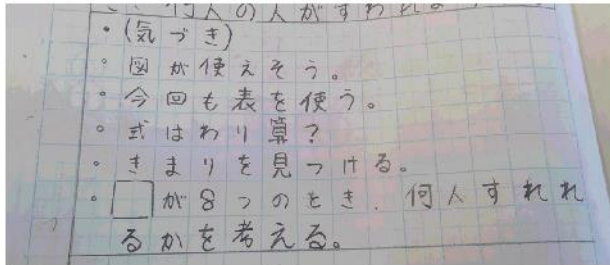 何人の人がすわれ
・(気づき)
。図が使えそう。
。今回も表を使う。
。式はわり算?
。きまりを見つける。
。□が8つのとき、何人すれれ
るかを考える。